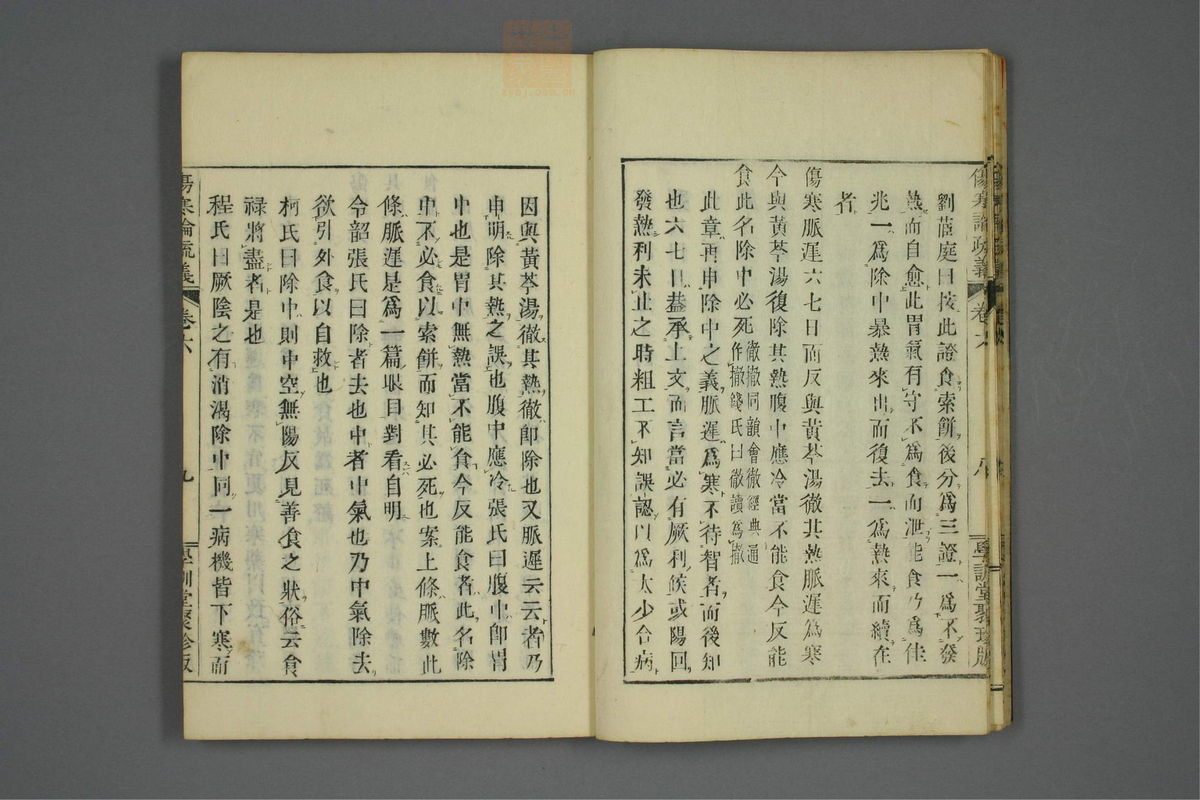 傷寒論疏義 卷六 八 學訓堂聚珍版
劉茝庭曰按此證食索餅後分爲三證一爲不發
熱而自愈此胃氣有守不爲食而泄能食乃爲佳
兆一爲除中暴熱來出而復去一爲熱來而續在
者
傷寒脈遲六七日而反與黃芩湯徹其熱脈遲爲寒
今與黃芩湯復除其熱腹中應冷當不能食今反能
食此名除中必死徹撤同韻會徹經典通
作撤錢氏曰徹讀爲撤
此章再申除中之義脈遲爲寒不待智者而後知
也六七日蓋承上文而言當必有厥利候或陽回
發熱利未止之時粗工不知誤認以爲太少合病
因與黃芩湯徹其熱徹卽除也又脈遲云云者乃
申明除其熱之誤也腹中應冷張氏曰腹中卽胃
中也是胃中無熱當不能食今反能食者此名除
中不必食以索餅而知其必死也案上條脈數此
條脈遲是爲一篇眼目對看自明
令韶張氏曰除者去也中者中氣也乃中氣除去
欲引外食以自救也
柯氏曰除中則中空無陽反見善食之狀俗云食
祿將盡者是也
程氏曰厥陰之有消渴除中同一病機皆下寒而
傷寒論疏義 卷六 九 學訓堂聚珍版